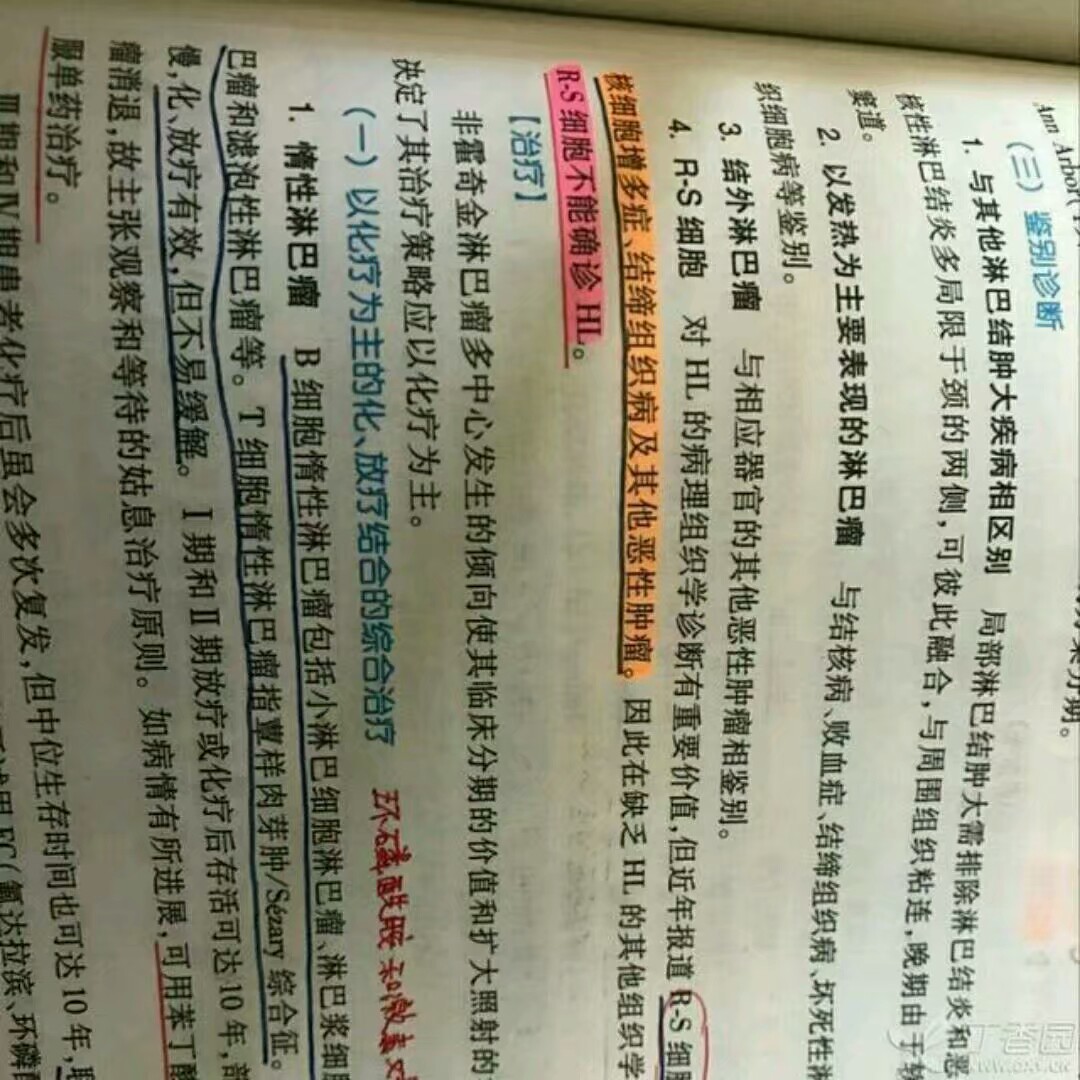 Ann Arbor
期。
（三）鉴别诊断
1. 与其他淋巴结肿大疾病相区别 局部淋巴结肿大需排除淋巴结炎和恶
核性淋巴结炎多局限于颈的两侧,可彼此融合,与周围组织粘连,晚期由于软
窦道。
2. 以发热为主要表现的淋巴瘤 与结核病、败血症、结缔组织病、坏死性淋
织细胞病等鉴别。
3. 结外淋巴瘤 与相应器官的其他恶性肿瘤相鉴别。
4. R-S 细胞 对 HL 的病理组织学诊断有重要价值,但近年报道 R-S 细胞
核细胞增多症、结缔组织病及其他恶性肿瘤。因此在缺乏 HL 的其他组织学
R-S 细胞不能确诊 HL。
【治疗】
非霍奇金淋巴瘤多中心发生的倾向使其临床分期的价值和扩大照射的
决定了其治疗策略应以化疗为主。
（一）以化疗为主的化、放疗结合的综合治疗 环磷酰胺 和激素
1. 惰性淋巴瘤 B 细胞惰性淋巴瘤包括小淋巴细胞淋巴瘤、淋巴浆细胞
巴瘤和滤泡性淋巴瘤等。T 细胞惰性淋巴瘤指蕈样肉芽肿/Sézary 综合征。
慢,化、放疗有效,但不易缓解。Ⅰ期和Ⅱ期放疗或化疗后存活可达10年,部
瘤消退,故主张观察和等待的姑息治疗原则。如病情有所进展,可用苯丁酸
服单药治疗。
Ⅲ期和Ⅳ期患者化疗后虽会多次复发,但中位生存时间也可达 10 年,
试用 FC(氟达拉滨、环磷酰
丁香园
WWW.DXY.CN